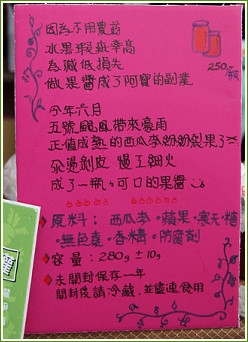 因為不用農葯
水果瑕疵率高
為減低損失
做果醬成了阿寶的副業
250元/瓶
今年六月
五號颱風帶來豪雨
正值成熟的西瓜李紛紛裂果了
殺燙剝皮 慢工細火
成了一瓶瓶可口的果醬
原料:西瓜李·蘋果·寡糖
·無色素·香精·防腐劑
容量:280g ± 10g
未開封保存一年
開封後請冷藏,並儘速食用